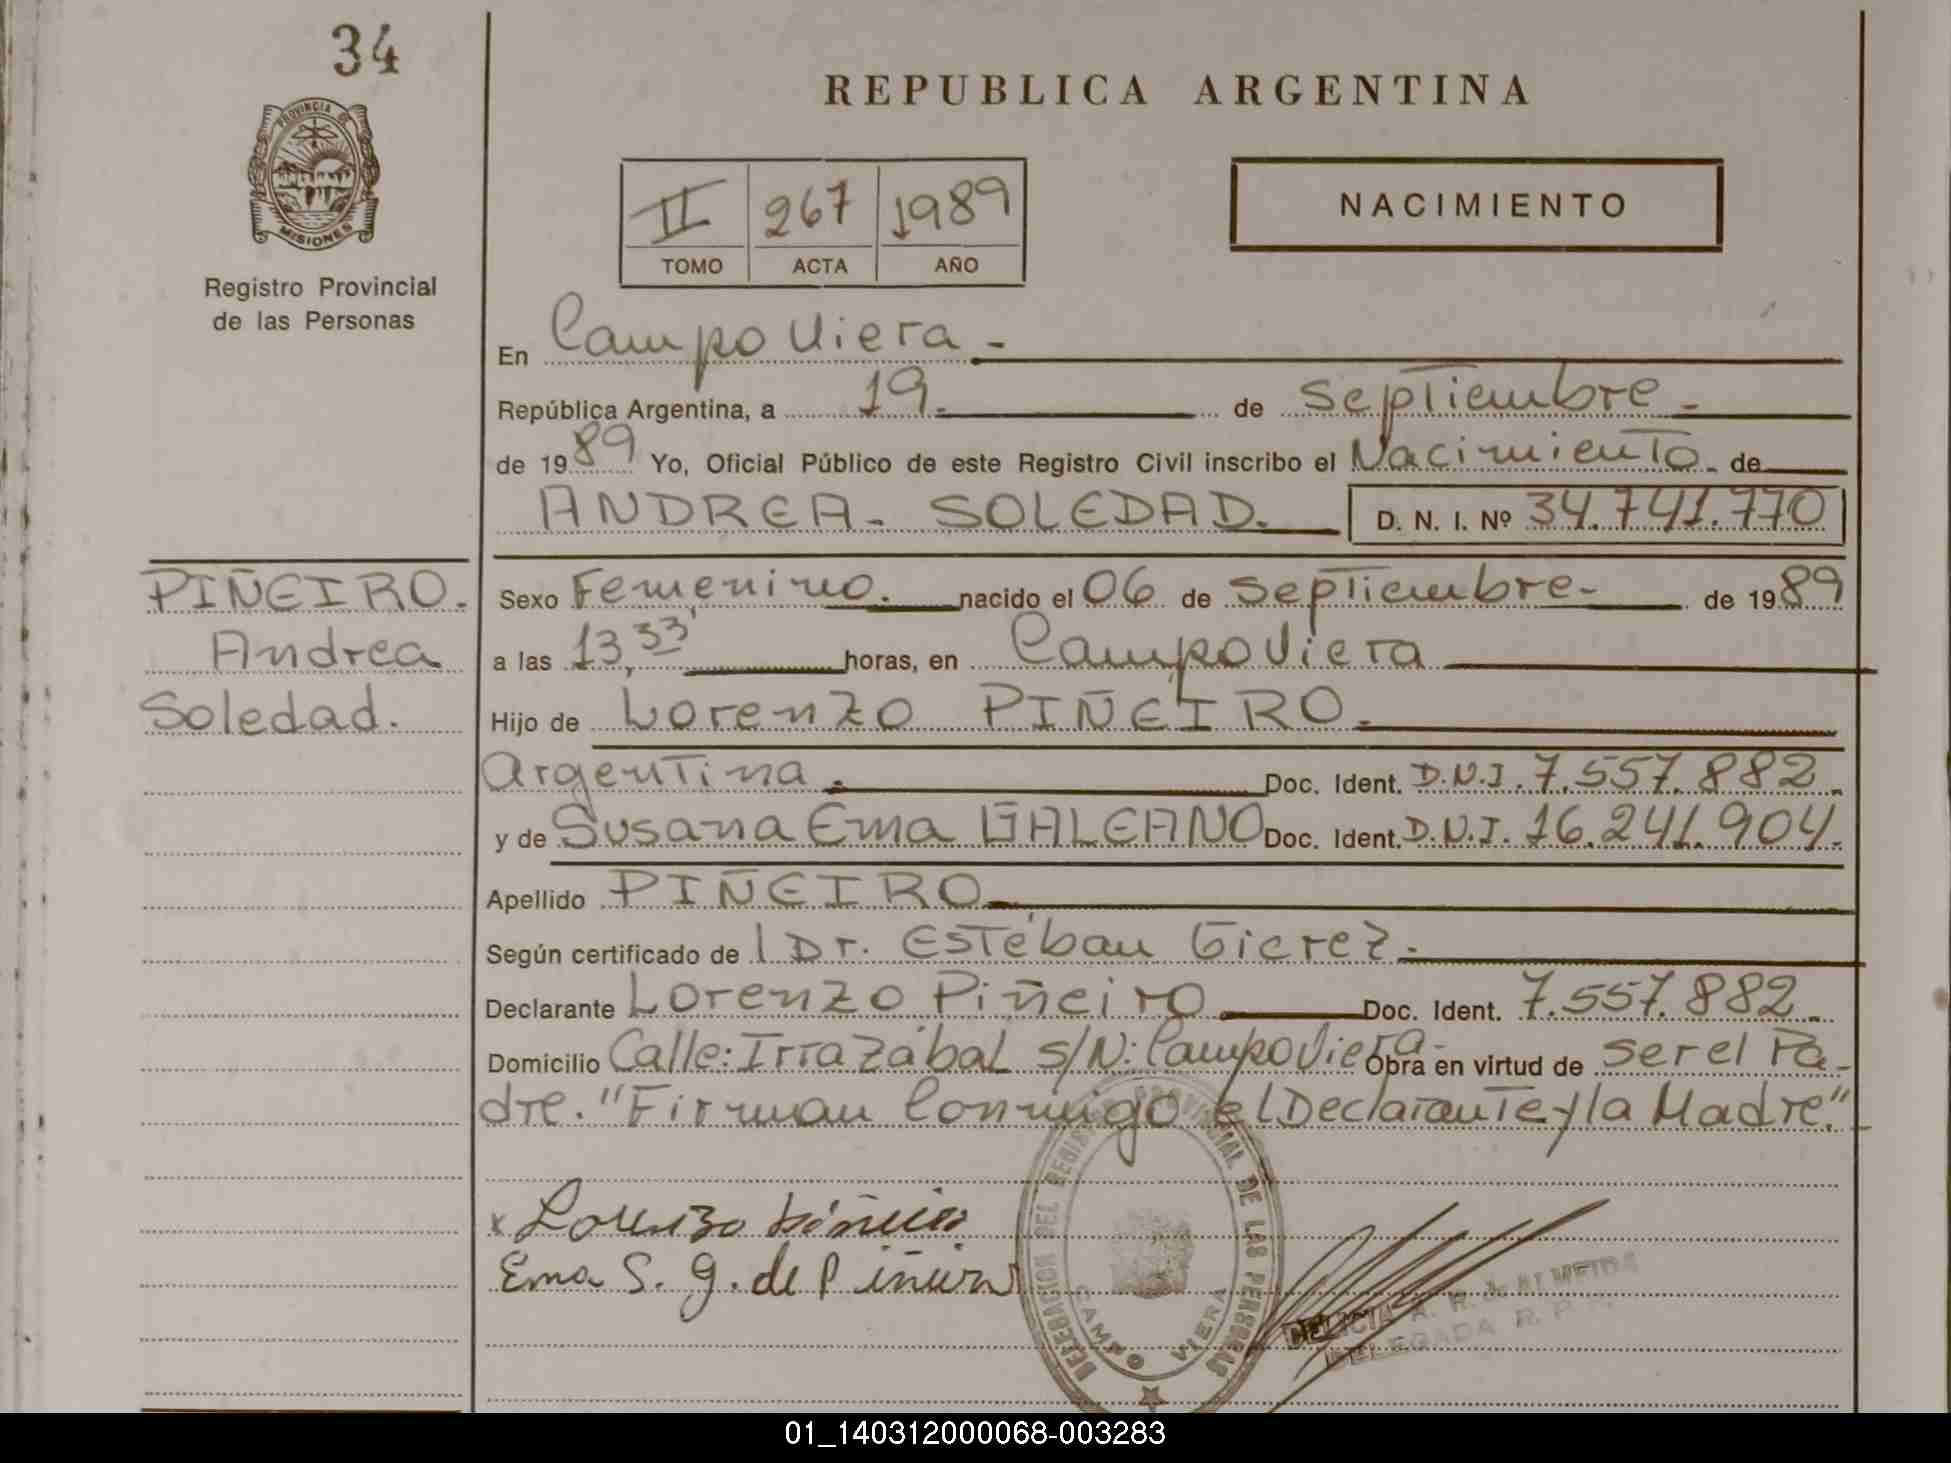 34
PROVINCIA DE
MISIONES
Registro Provincial
de las Personas
REPUBLICA ARGENTINA
II 267 1989
TOMO ACTA AÑO
NACIMIENTO
En Campo Viera -
República Argentina, a 19. de septiembre -
de 1989 Yo, Oficial Público de este Registro Civil inscribo el Nacimiento de
ANDREA - SOLEDAD. D. N. I. Nº 34.741.770
PIÑEIRO.
Andrea
Soledad.
Sexo Femenino. nacido el 06 de septiembre - de 1989
a las 13,33' horas, en Campo Viera
Hijo de Lorenzo PIÑEIRO.
Argentina. Doc. Ident. D.N.I. 7.557.882.
y de Susana Ema GALEANO Doc. Ident. D.N.I. 16.241.904.
Apellido PIÑEIRO
Según certificado de l Dr. Estéban Gierez.
Declarante Lorenzo Piñeiro Doc. Ident. 7.557.882.
Domicilio Calle: Irrazábal s/N: Campo Viera - Obra en virtud de ser el Pa-
dre. "Firman Conmigo el Declarante y la Madre."
x Lorenzo Piñeiro
Ema S. G. de Piñeiro
DELEGACION DEL REGISTRO PROVINCIAL DE LAS PERSONAS
CAMPO VIERA
DELICIA A. R. de ALMEIDA
DELEGADA R. P. P.
01_140312000068-003283